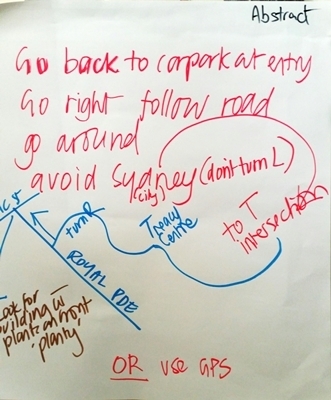 Abstract
Go back to carpark at entry
Go right follow road
go around
avoid Sydney (don't turn L)
(city)
to T
intersection
turn R
Treacy
Centre
ROYAL PDE
Look for
building w
plants on front
'planty'
OR use GPS